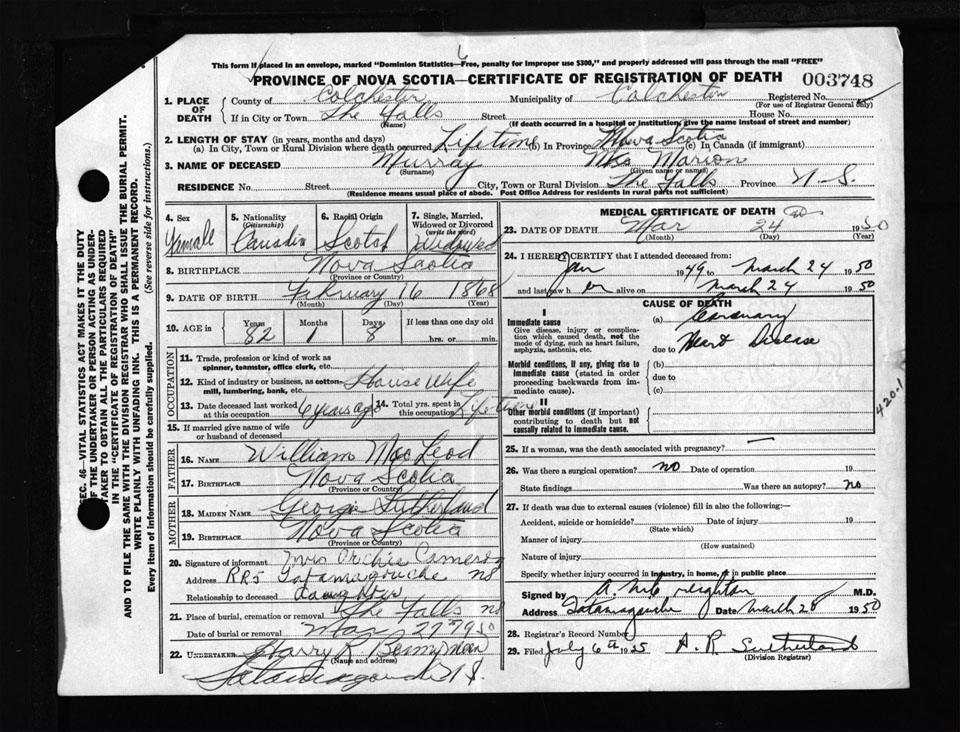 This form if placed in an envelope, marked "Dominion Statistics—Free, penalty for improper use $300," and properly addressed will pass through the mail "FREE"
PROVINCE OF NOVA SCOTIA—CERTIFICATE OF REGISTRATION OF DEATH 003748
1. PLACE OF DEATH
County of Colchester Municipality of Colchester Registered No.
(For use of Registrar General only)
If in City or Town The Falls Street House No.
(Name) (If death occurred in a hospital or institution, give the name instead of street and number)
2. LENGTH OF STAY (in years, months and days)
(a) In City, Town or Rural Division where death occurred Lifetime (b) In Province Nova Scotia (c) In Canada (if immigrant)
3. NAME OF DECEASED Murray Mrs Marion
(Surname) (Given name or names)
RESIDENCE No. Street City, Town or Rural Division The Falls Province N.S.
(Residence means usual place of abode. Post Office Address for residents in rural parts not sufficient)
4. Sex Female
5. Nationality (Citizenship) Canadia
6. Racial Origin Scotch
7. Single, Married, Widowed or Divorced (write the word) Widowed
8. BIRTHPLACE Nova Scotia
(Province or Country)
9. DATE OF BIRTH February 16 1868
(Month) (Day) (Year)
10. AGE in Years 82 Months 1 Days 8 If less than one day old
hrs. or min.
OCCUPATION
11. Trade, profession or kind of work as spinner, teamster, office clerk, etc.
12. Kind of industry or business, as cotton-mill, lumbering, bank, etc. House Wife
13. Date deceased last worked at this occupation 6 years ago 14. Total yrs. spent in this occupation Lifetime
15. If married give name of wife or husband of deceased
FATHER
16. NAME William MacLeod
17. BIRTHPLACE Nova Scotia
(Province or Country)
MOTHER
18. MAIDEN NAME Georgie Sutherland
19. BIRTHPLACE Nova Scotia
(Province or Country)
20. Signature of informant Mrs Archie Cameron
Address RR5 Tatamagouche NS
Relationship to deceased daughter
21. Place of burial, cremation or removal The Falls NS
Date of burial or removal Mar 27 1950
22. UNDERTAKER Harry K.
(Name and address)
Tatamagouche N.S.
MEDICAL CERTIFICATE OF DEATH
23. DATE OF DEATH Mar 24 1950
(Month) (Day) (Year)
24. I HEREBY CERTIFY that I attended deceased from:
Jan 1949 to March 24 1950
and last saw her alive on March 24 1950
CAUSE OF DEATH
I
Immediate cause
Give disease, injury or complication which caused death, not the mode of dying, such as heart failure, asphyxia, asthenia, etc.
(a) Coronary
due to Heart Disease
Morbid conditions, if any, giving rise to immediate cause (stated in order proceeding backwards from immediate cause).
(b)
due to
(c)
II
Other morbid conditions (if important) contributing to death but not causally related to immediate cause.
420.1
25. If a woman, was the death associated with pregnancy? —
26. Was there a surgical operation? no Date of operation 19
State findings Was there an autopsy? no
27. If death was due to external causes (violence) fill in also the following:—
Accident, suicide or homicide? Date of injury 19
(State which)
Manner of injury
(How sustained)
Nature of injury
Specify whether injury occurred in industry, in home, or in public place
Signed by M.D.
Address Tatamagouche Date March 28 1950
28. Registrar's Record Number
29. Filed July 6th 1955 A. R. Sutherland
(Division Registrar)
SEC. 46—VITAL STATISTICS ACT MAKES IT THE DUTY
OF THE UNDERTAKER OR PERSON ACTING AS UNDER-
TAKER TO OBTAIN ALL THE PARTICULARS REQUIRED
IN THE "CERTIFICATE OF REGISTRATION OF DEATH" AND
TO FILE THE SAME WITH THE DIVISION REGISTRAR WHO SHALL ISSUE THE BURIAL PERMIT.
WRITE PLAINLY WITH UNFADING INK. THIS IS A PERMANENT RECORD.
Every item of information should be carefully supplied. (See reverse side for instructions.)